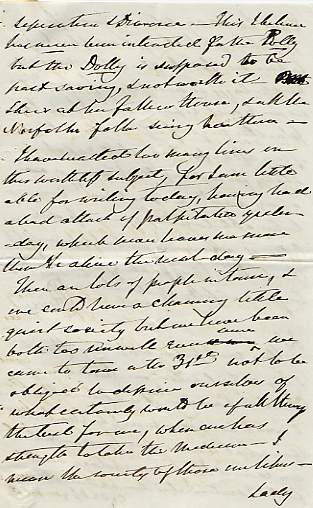 separation & Divorce — This scheme
has never been intended for the Polly
but the Dolly is supposed to be
past saving, & not worth it
She is at her father's House, & all the
Norfolk folk seeing her there —
I have wasted too many lines on
this worthless subject, for I am little
able for writing today, having had
a bad attack of palpitation yester-
-day, which never leaves me more
than ½ alive the next day —
There are lots of people in town, &
we could have a charming little
quiet society but we have been
both too unwell ever since we
came to town on the 31st not to be
obliged to deprive ourselves of
what certainly would be of all things
the best for me, when one has
strength to take the medicine — I
mean the society of those one likes —
Lady